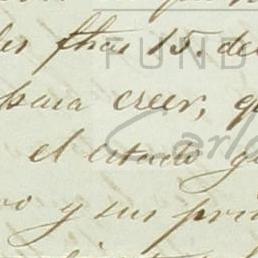 fhas 15. de
para creer, q
el citado g
y sus pri
FUND
Carlo